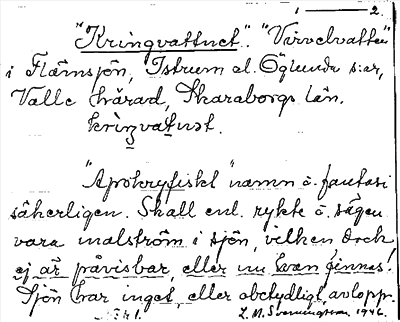 1 — 2.
"Kringvattnet". "Virvelvatten"
i Flämsjön, Istrum el. Öglunda s:ar,
Valle härad, Skaraborgs län.
"Apokryfiskt" namn å. fantasi
säkerligen. Skall enl. rykte å. sägen
vara malström i sjön, vilken dock
ej är påvisbar, eller nu kan finnas!
Sjön har inget, eller obetydligt, avlopp.
L. M. Svenungsson 1946.